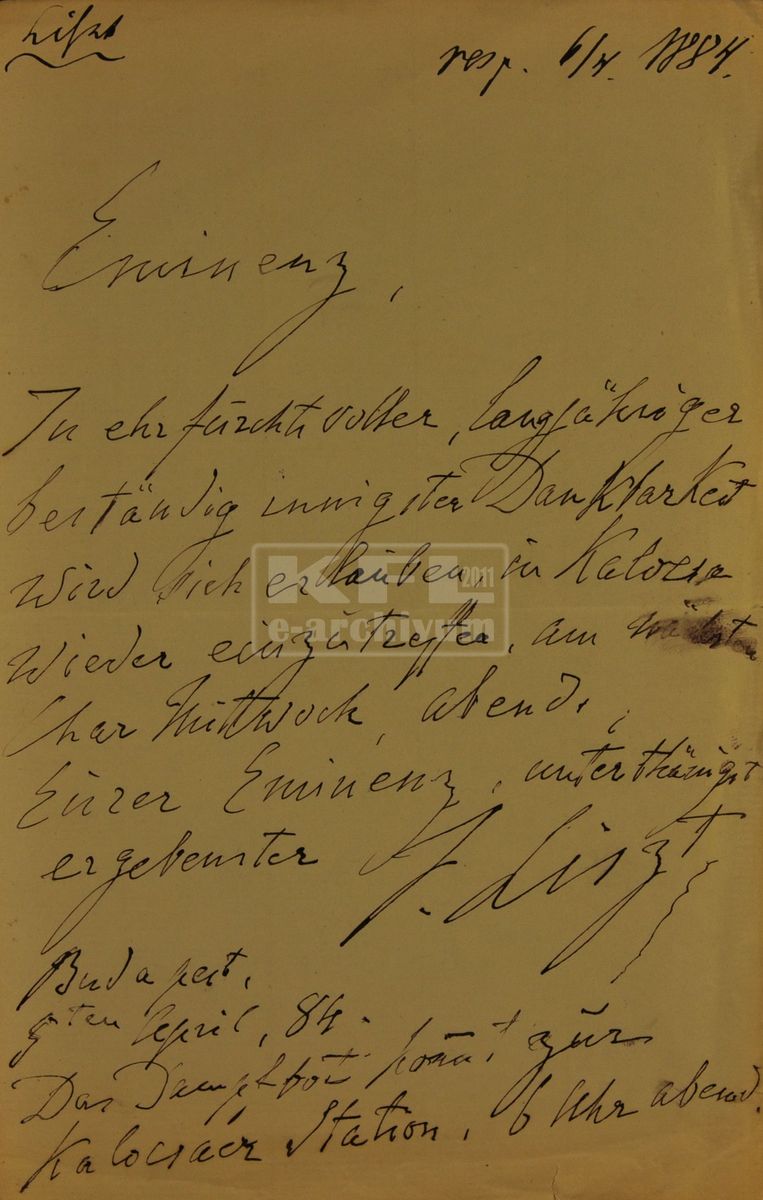 Liszt
resp. 6/4. 1884.
Eminenz,
In ehrfürchtsvoller, langjähriger
beständig innigster Dankbarkeit
wird sich erlauben, in Kalocsa
wieder einzutreffen, am nächsten
Char Mittwoch, abends,
Eurer Eminenz, unterthänigst
ergebenster F. Liszt
Budapest,
5ten April, 84.
Das Dampfboot kommt zur
Kalocsaer Station, 6 Uhr abend.
KFL 2011
e-archivum